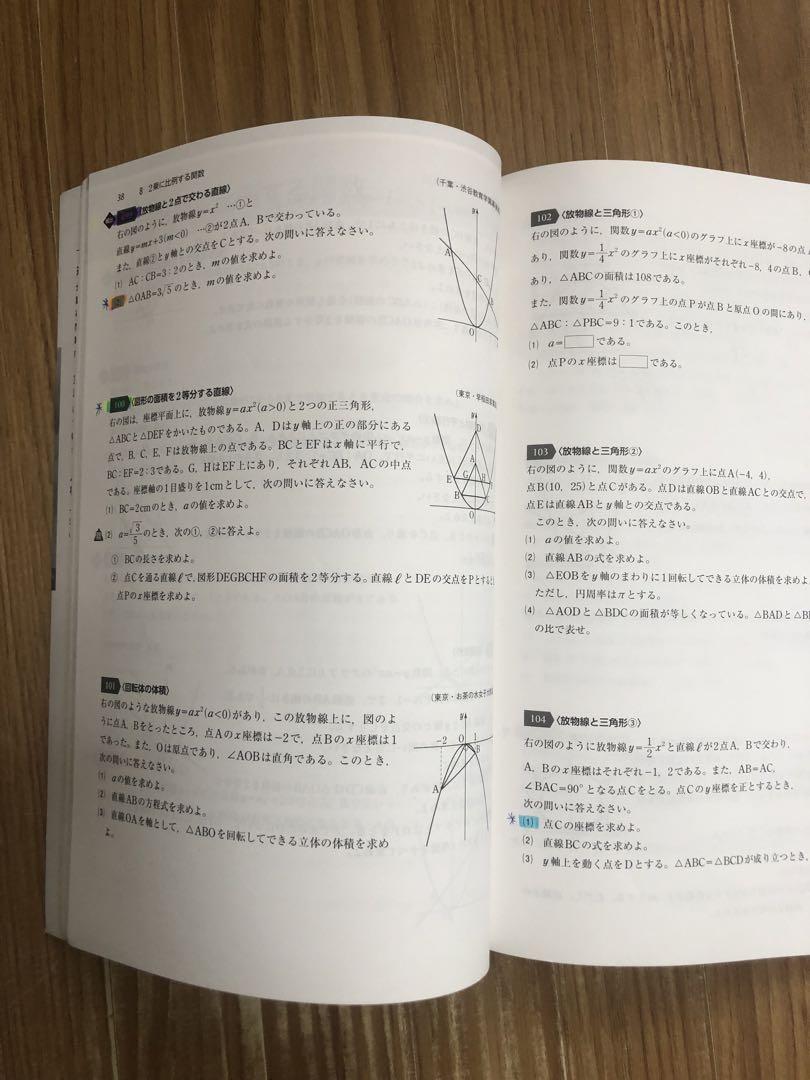 38 8 2乗に比例する関数
〈放物線と2点で交わる直線〉
(千葉・渋谷教育学園幕張
右の図のように，放物線y=x² …①と
直線y=mx+3(m<0) …②が2点A，Bで交わっている。
また，直線②とy軸との交点をCとする。次の問いに答えなさい。
(1) AC：CB=3：2のとき，mの値を求めよ。
(2) △OAB=3√5のとき，mの値を求めよ。
y
A
C
B
O
100 〈図形の面積を2等分する直線〉
(東京・早稲田実業
右の図は，座標平面上に，放物線y=ax²(a>0)と2つの正三角形，
△ABCと△DEFをかいたものである。A，Dはy軸上の正の部分にある
点で，B，C，E，Fは放物線上の点である。BCとEFはx軸に平行で，
BC：EF=2：3である。G，HはEF上にあり，それぞれAB，ACの中点
である。座標軸の1目盛りを1cmとして，次の問いに答えなさい。
(1) BC=2cmのとき，aの値を求めよ。
(2) a=√3/5のとき，次の①，②に答えよ。
① BCの長さを求めよ。
② 点Cを通る直線ℓで，図形DEGBCHFの面積を2等分する。直線ℓとDEの交点をPとすると
点Pのx座標を求めよ。
y
D
A
E
G
H
B
C
O
101 〈回転体の体積〉
(東京・お茶の水女子大
右の図のような放物線y=ax²(a<0)があり，この放物線上に，図のよ
うに点A，Bをとったところ，点Aのx座標は−2で，点Bのx座標は1
であった。また，Oは原点であり，∠AOBは直角である。このとき，
次の問いに答えなさい。
(1) aの値を求めよ。
(2) 直線ABの方程式を求めよ。
(3) 直線OAを軸として，△ABOを回転してできる立体の体積を求め
よ。
y
−2
O
1
B
A
102 〈放物線と三角形①〉
右の図のように，関数y=ax²(a<0)のグラフ上にx座標が−8の点
あり，関数y=1/4x²のグラフ上にx座標がそれぞれ−8，4の点B，
あり，△ABCの面積は108である。
また，関数y=1/4x²のグラフ上の点Pが点Bと原点Oの間にあり，
△ABC：△PBC=9：1である。このとき，
(1) a=□である。
(2) 点Pのx座標は□である。
103 〈放物線と三角形②〉
右の図のように，関数y=ax²のグラフ上に点A(−4, 4)，
点B(10, 25)と点Cがある。点Dは直線OBと直線ACとの交点で，
点Eは直線ABとy軸との交点である。
このとき，次の問いに答えなさい。
(1) aの値を求めよ。
(2) 直線ABの式を求めよ。
(3) △EOBをy軸のまわりに1回転してできる立体の体積を求めよ
ただし，円周率はπとする。
(4) △AODと△BDCの面積が等しくなっている。△BADと△B
の比で表せ。
104 〈放物線と三角形③〉
右の図のように放物線y=1/2x²と直線ℓが2点A，Bで交わり，
A，Bのx座標はそれぞれ−1，2である。また，AB=AC，
∠BAC=90°となる点Cをとる。点Cのy座標を正とするとき，
次の問いに答えなさい。
(1) 点Cの座標を求めよ。
(2) 直線BCの式を求めよ。
(3) y軸上を動く点をDとする。△ABC=△BCDが成り立つとき，